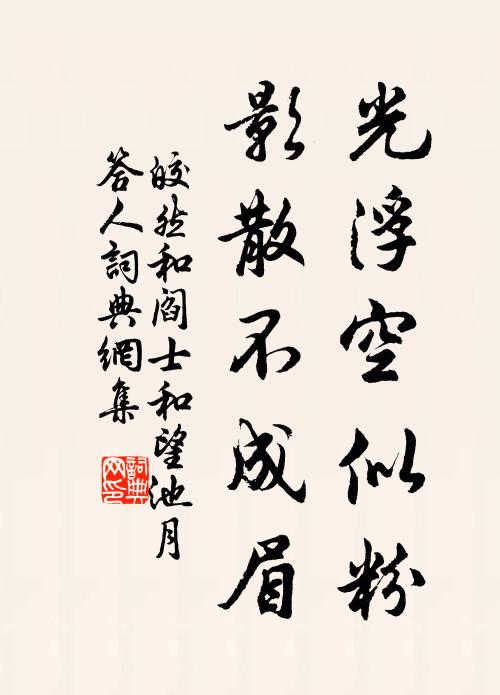 光浮空似粉
影散不成眉
皎然和阎士和望池月
答人詞典網集
詞典
网印